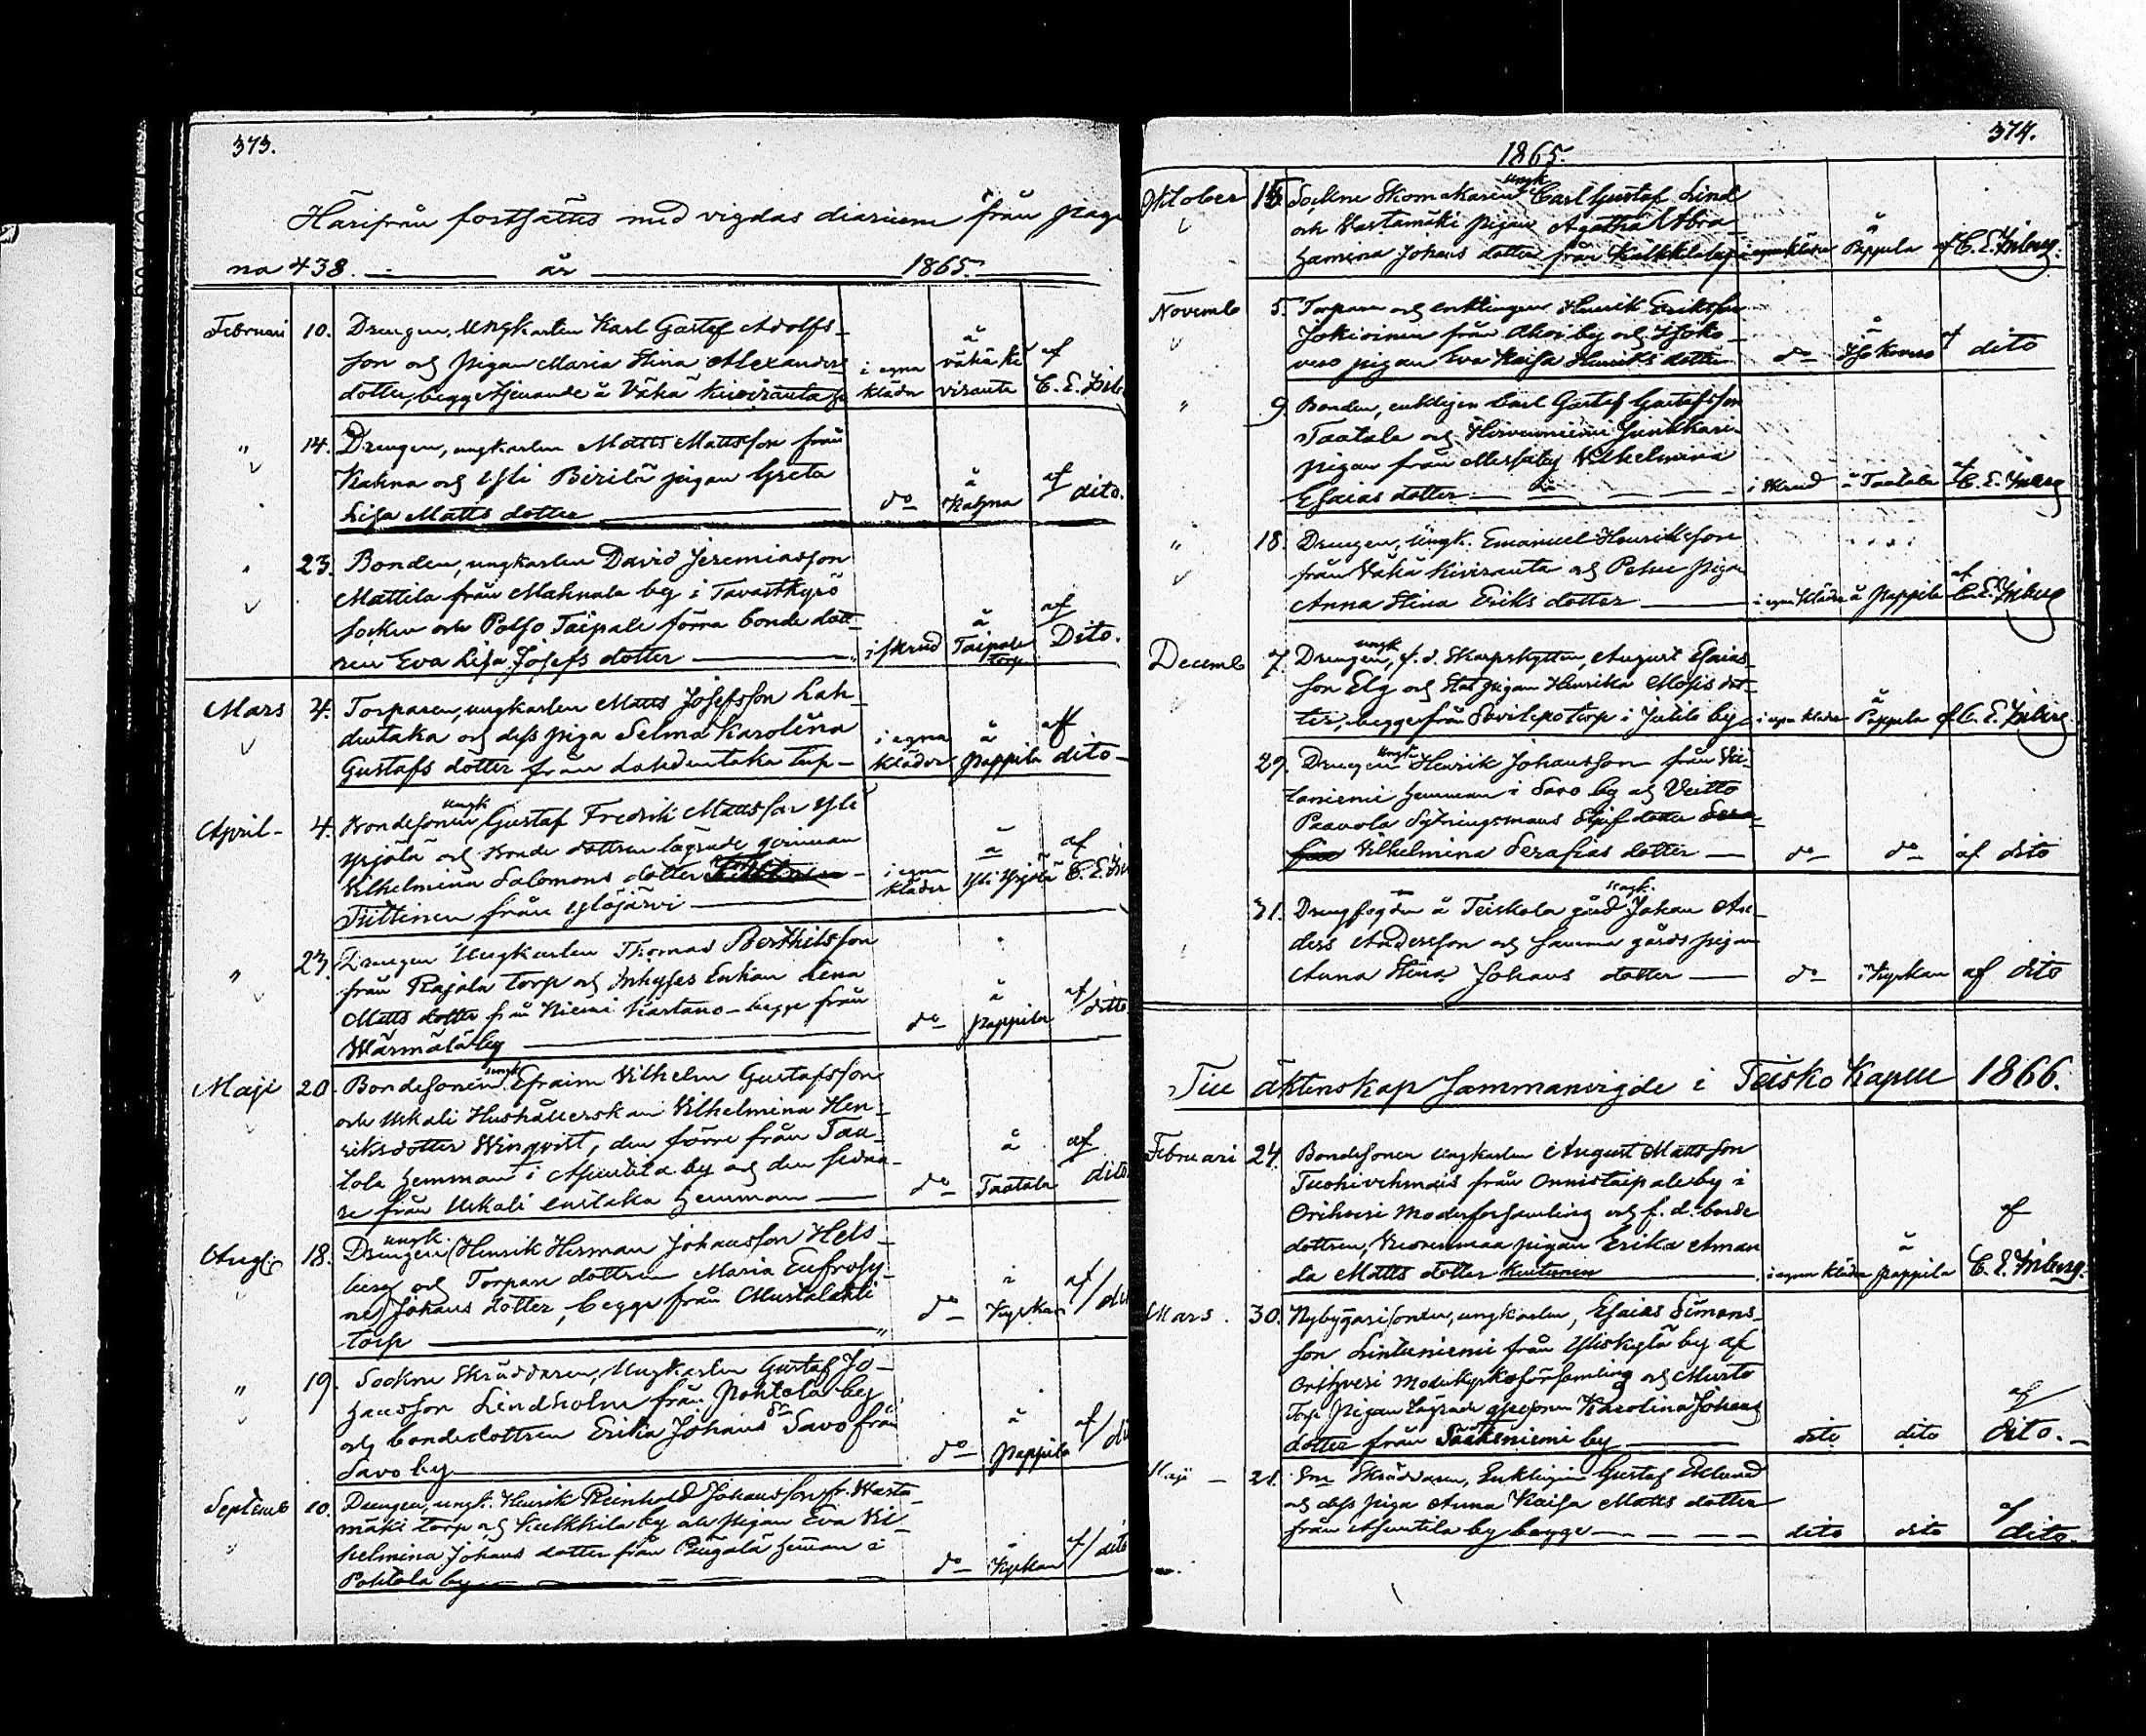 373.
Härifrån fortsättes med vigdas diarium från pagi
na 438. — år — 1865.
Februari 10. Drengen, Ungkarlen Karl Gustaf Adolfs-
son och pigan Maria Stina Alexanders
dotter, begge tjenande å Vähä Kiviranta i egna kläder å Vähä Kiviranta af C. E.
" 14. Drengen, ungkarlen Matts Mattsson från
Kahna och Yli Pirilä pigan Greta
Lisa Matts dotter — do å Kahna af dito.
" 23. Bonden, ungkarlen David Jeremiasson
Mattila från Mahnala by i Tavastkyrö
socken och Polso Taipale förra bonde dott-
ren Eva Lisa Josefs dotter — i skrud å Taipale torp af Dito.
Mars 4. Torparen, ungkarlen Matts Josefsson Lah-
dentaka och dess piga Selma Karolina
Gustafs dotter från Lahdentaka i egna kläder å pappila af dito
April 4. Bondesonen ungk Gustaf Fredrik Mattsson Yli
Yrjölä och Bonde dottren lägrade qvinnan
Vilhelmina Salomons dotter i egna kläder å Yli Yrjölä af C. E.
Tiittinen från Ylöjärvi
" 23. Drengen Ungkarlen Thomas Berthilsson
från Rajala torp och Inhyses Enkan Lena
Matts dotter från Niemi Kartano - begge från do å pappila af ditto
Wärmälä by
Maji 20. Bondesonen ungk Efraim Vilhelm Gustafsson
och Uskali Hushållerskan Vilhelmina Hen-
riksdotter Winqvist, den förre från Taa-
tola hemman i Asuntila by och den sedna-
re från Uskali enstaka hemman — do å Taatala af dito
Aug. 18. Drengen ungk. Henrik Herman Johansson Hels-
berg och Torpare dottren Maria Eufrosy-
ne Johans dotter, begge från Mustalahti do i Kyrkan af
torp
" 19. Sockne Skräddaren, Ungkarlen Gustaf Jo-
hansson Lindholm från Pohtola by
och bondedottren Erika Johans dr Savo från
Savo by do å pappila af
Septemb 10. Drengen, ungk. Henrik Reinhold Johansson fr. Wasta-
mäki torp och Kulkkila by och pigan Eva Vil-
helmina Johans dotter från Pengälä heman i
Pohtola by do i Kyrkan af dito
374.
1865.
Oktober 15 Sockne Skomakaren ungk Carl Gustaf Lind
och Wastamäki pigan Agatha Abra-
hamina Johans dotter från Kulkkila by i egna kläder å Pappila af C. E. Inberg.
Novemb 5. Torparen och enklingen Henrik Eriksson
Jokioinen från by och
pigan Eva Kaisa Henriks dotter do å af dito
" 9 Bonden, enklingen Carl Gustaf Gustafsson
Taatala och Hirvenniemi Junkkari
pigan från by Vilhelmina
Esaias dotter i skrud å Taatala af C. E. Inberg
" 18. Drengen, Ungk. Emanuel Henriksson
från Vähä Kiviranta och pigan
Anna Stina Eriks dotter i egna kläder å Pappila af C. E. Inberg
Decemb 7. Drengen, ungk f. d. Skarpskytten, August Esaias-
son Elg och pigan Henrika Mosis dot-
ter, begge från Savilepo torp i Jutila by i egna kläder å Pappila af C. E. Inberg.
29. Drengen ungk Henrik Johansson från
hemman i Savo by och Veitto
Paavola Sytningsmans
Vilhelmina Serafias dotter — do do af dito
31. Drengfogden å Teiskola gård ungk. Johan An-
ders Andersson och samma gårds pigan
Anna Stina Johans dotter — do i Kyrkan af dito
Till äktenskap Sammanvigde i Teisko Kapell 1866.
Februari 24. Bondesonen ungkarlen August Mattsson
från Onnistaipale by i
Orihvesi Moderförsamling och f. d. bonde
dottren, pigan Erika Aman
da Matts dotter i egna kläder å pappila af C. E. Inberg.
Mars 30. Nybyggarisonen, ungkarlen, Esaias Simons-
son Lintuniemi från Yliskylä by af
Orihvesi Moderkyrkoförsamling och Murto
Torp Pigan Karolina Johans
dotter från Sääksniemi by dito dito af dito.
Maji 21. Skräddaren, Enklingen Gustaf Eklund
och dess piga Anna Kaisa Matts dotter
från Asuntila by begge dito dito af dito.